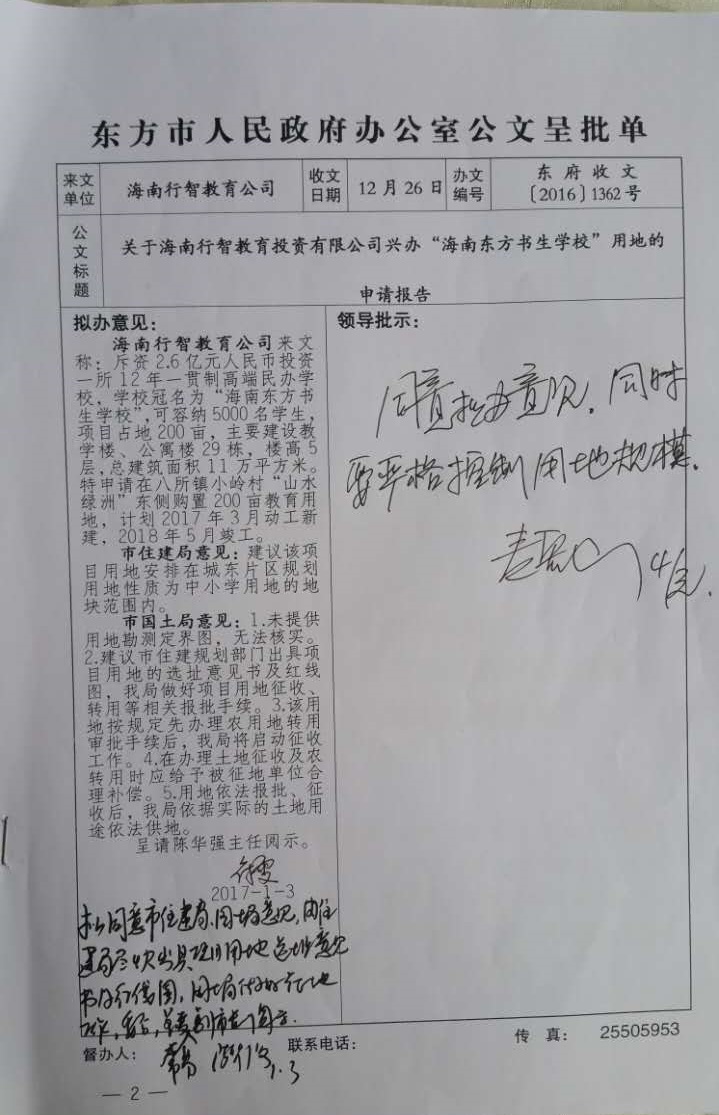 东方市人民政府办公室公文呈批单
来文单位 海南行智教育公司 收文日期 12月26日 办文编号 东府收文〔2016〕1362号
公文标题 关于海南行智教育投资有限公司兴办“海南东方书生学校”用地的
申请报告
拟办意见:
海南行智教育公司来文
称:斥资2.6亿元人民币投资
一所12年一贯制高端民办学
校,学校冠名为“海南东方书
生学校”,可容纳5000名学生,
项目占地200亩,主要建设教
学楼、公寓楼29栋,楼高5
层,总建筑面积11万平方米。
特申请在八所镇小岭村“山水
绿洲”东侧购置200亩教育用
地,计划2017年3月动工新
建,2018年5月竣工。
市住建局意见:建议该项
目用地安排在城东片区规划
用地性质为中小学用地的地
块范围内。
市国土局意见:1.未提供
用地勘测定界图,无法核实。
2.建议市住建规划部门出具项
目用地的选址意见书及红线
图,我局做好项目用地征收、
转用等相关报批手续。3.该用
地按规定先办理农用地转用
审批手续后,我局将启动征收
工作。4.在办理土地征收及农
转用时应给予被征地单位合
理补偿。5.用地依法报批、征
收后,我局依据实际的土地用
途依法供地。
呈请陈华强主任阅示。
2017-1-3
拟同意市住建局、国土局意见,由住
建局尽快出具项目用地选址意见
书及红线图,国土局做好征地
工作,
领导批示:
同意拟办意见,同时
要严格控制用地规模。
督办人: 1.3 联系电话: 传真: 25505953
— 2 —